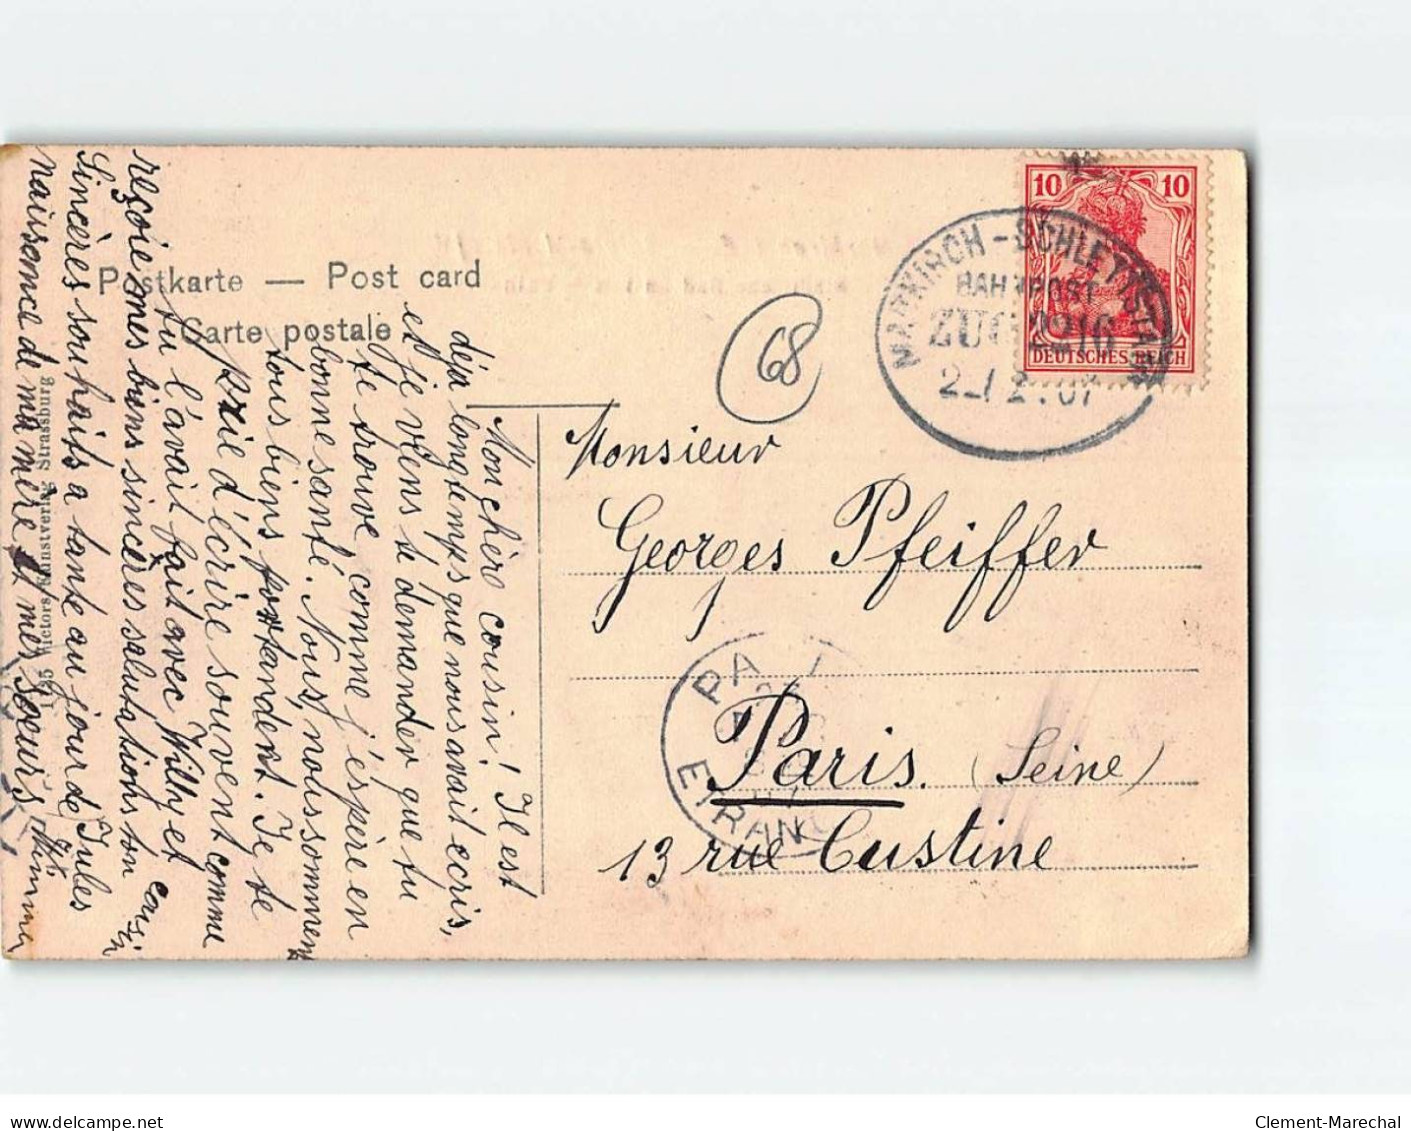 Postkarte — Post card
Carte postale
10 10
DEUTSCHES REICH
MARKIRCH - SCHLETTSTADT
BAHNPOST
ZUG 2216
2 12. 07
68
Monsieur
Georges Pfeiffer
Paris. (Seine)
13 rue Custine
PA
ETRAN
Mon chère cousin! Il est
déja longtemps que nous avait ecris,
et je viens te demander que tu
te trouve, comme j'éspère en
bonne santé. Nous, nous sommen
tous biens portandent. Je te
prie d'écrire souvent comme
tu l'avait fait avec Willy et
reçoie mes biens sincères salutations ton cousin
Sincères souhaits a tante au jour de Jules
naissance de ma mère et mes soeurs
Kunstverlag Strassburg
delcampe.net
Clement-Marechal